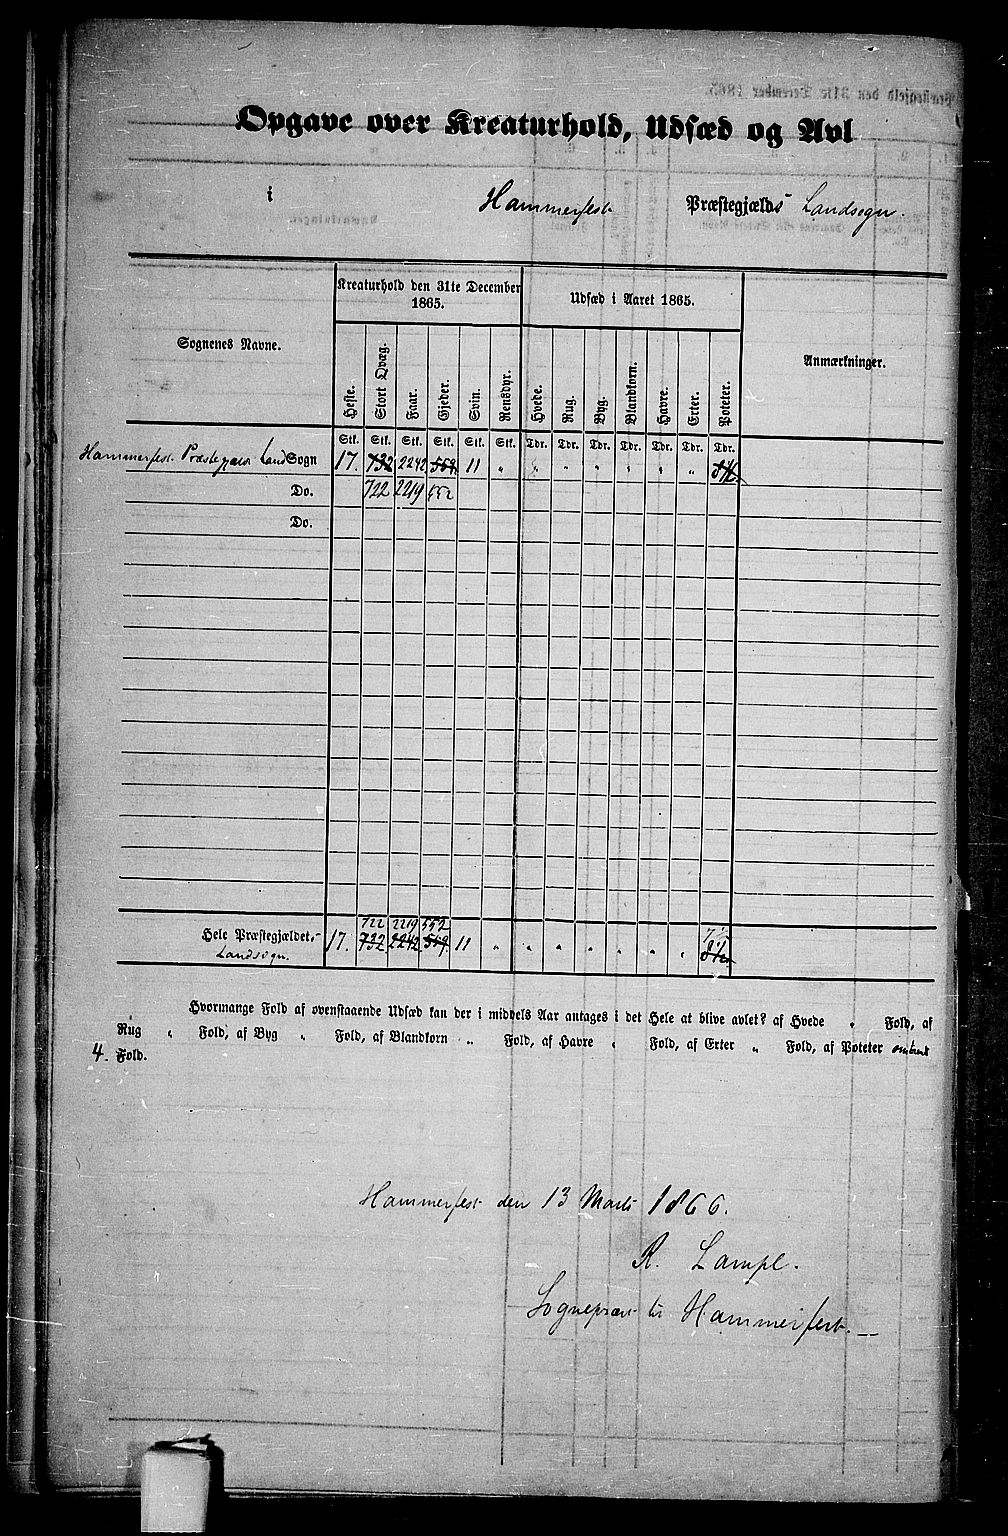 Opgave over Kreaturhold, Udsæd og Avl
i Hammerfest Præstegjælds Landsogn.
Kreaturhold den 31te December 1865.
Udsæd i Aaret 1865.
Sognenes Navne.
Anmærkninger.
Heste. Stort Qvæg. Faar. Gjeder. Svin. Rensdyr. Hvede. Rug. Byg. Blandkorn. Havre. Erter. Poteter.
Stk. Stk. Stk. Stk. Stk. Stk. Tdr. Tdr. Tdr. Tdr. Tdr. Tdr. Tdr.
Hammerfest Præstegjælds Land Sogn 17. 732 2242 559. 11 " " " " " " "
Do. 722 2219 552
Do.
722 2219 552
Hele Præstegjældet, 17. 732. 2242 559. 11 " " " " " " "
Landsogn.
Hvormange Fold af ovenstaaende Udsæd kan der i middels Aar antages i det Hele at blive avlet? af Hvede " Fold, af
Rug " Fold, af Byg " Fold, af Blandkorn " Fold, af Havre " Fold, af Erter " Fold, af Poteter omtrent
4. Fold.
Hammerfest den 13 Marts 1866.
R. Lampe.
Sognepræst til Hammerfest.